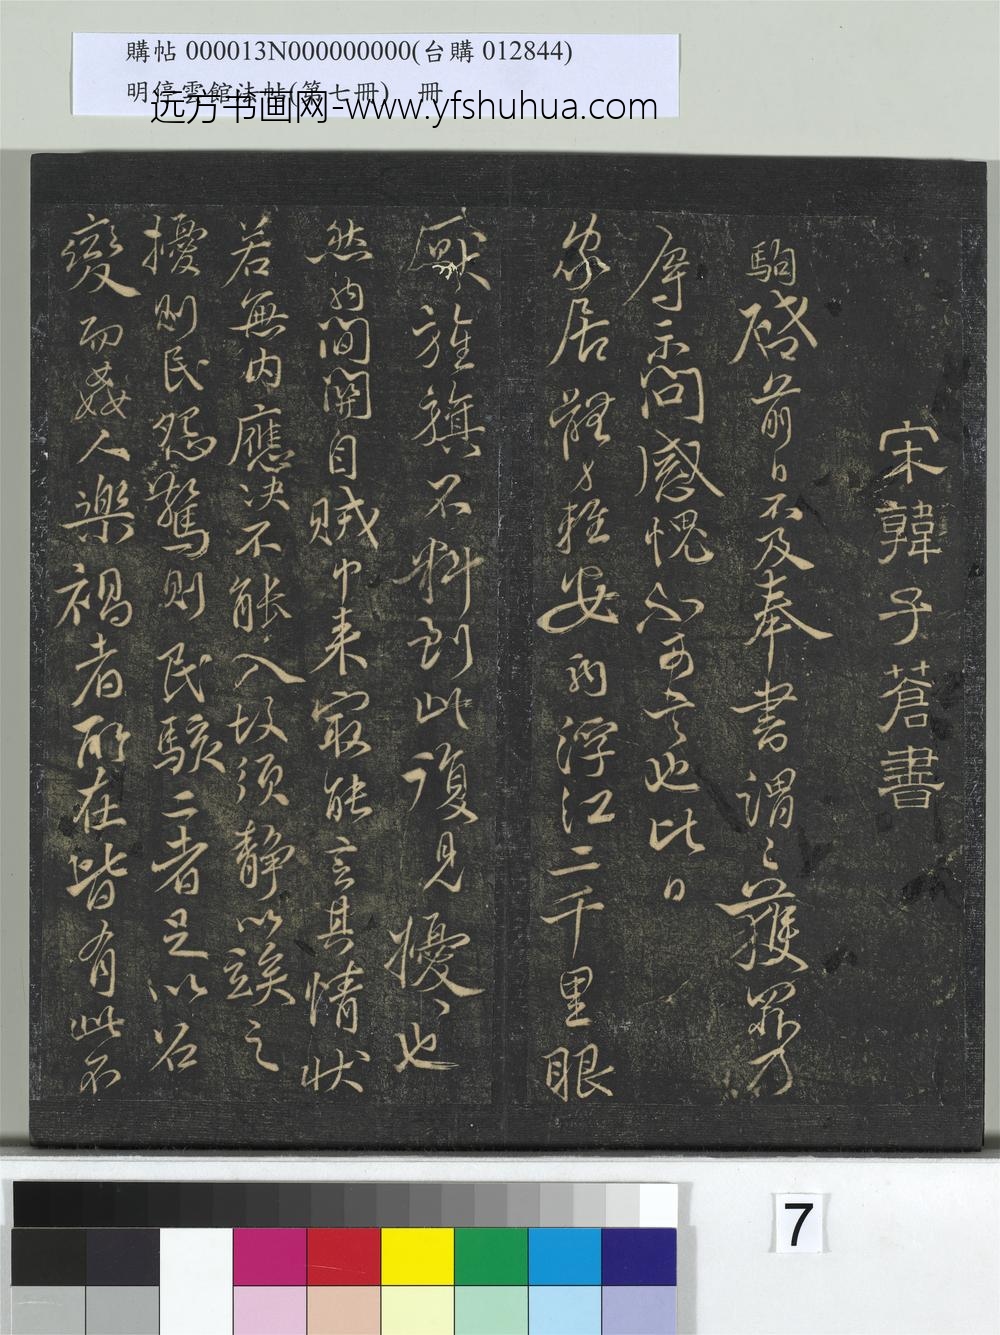 購帖 000013N000000000(台購 012844)
明停雲館法帖(第七冊) 冊
远方书画网-www.yfshuhua.com
宋韓子蒼書
駒啓前日不及奉書謂謂獲罪乃
辱示問感愧不可言也比日
家居體力輕安駒浮江二千里眼
厭旌旗不料到此復見擾擾也
然間關自賊中来寂能言其情状
若無内應决不能入故須静以竢之
擾則民怨驚則民駭二者足以召
變而姦人樂禍者所在皆有此不
7